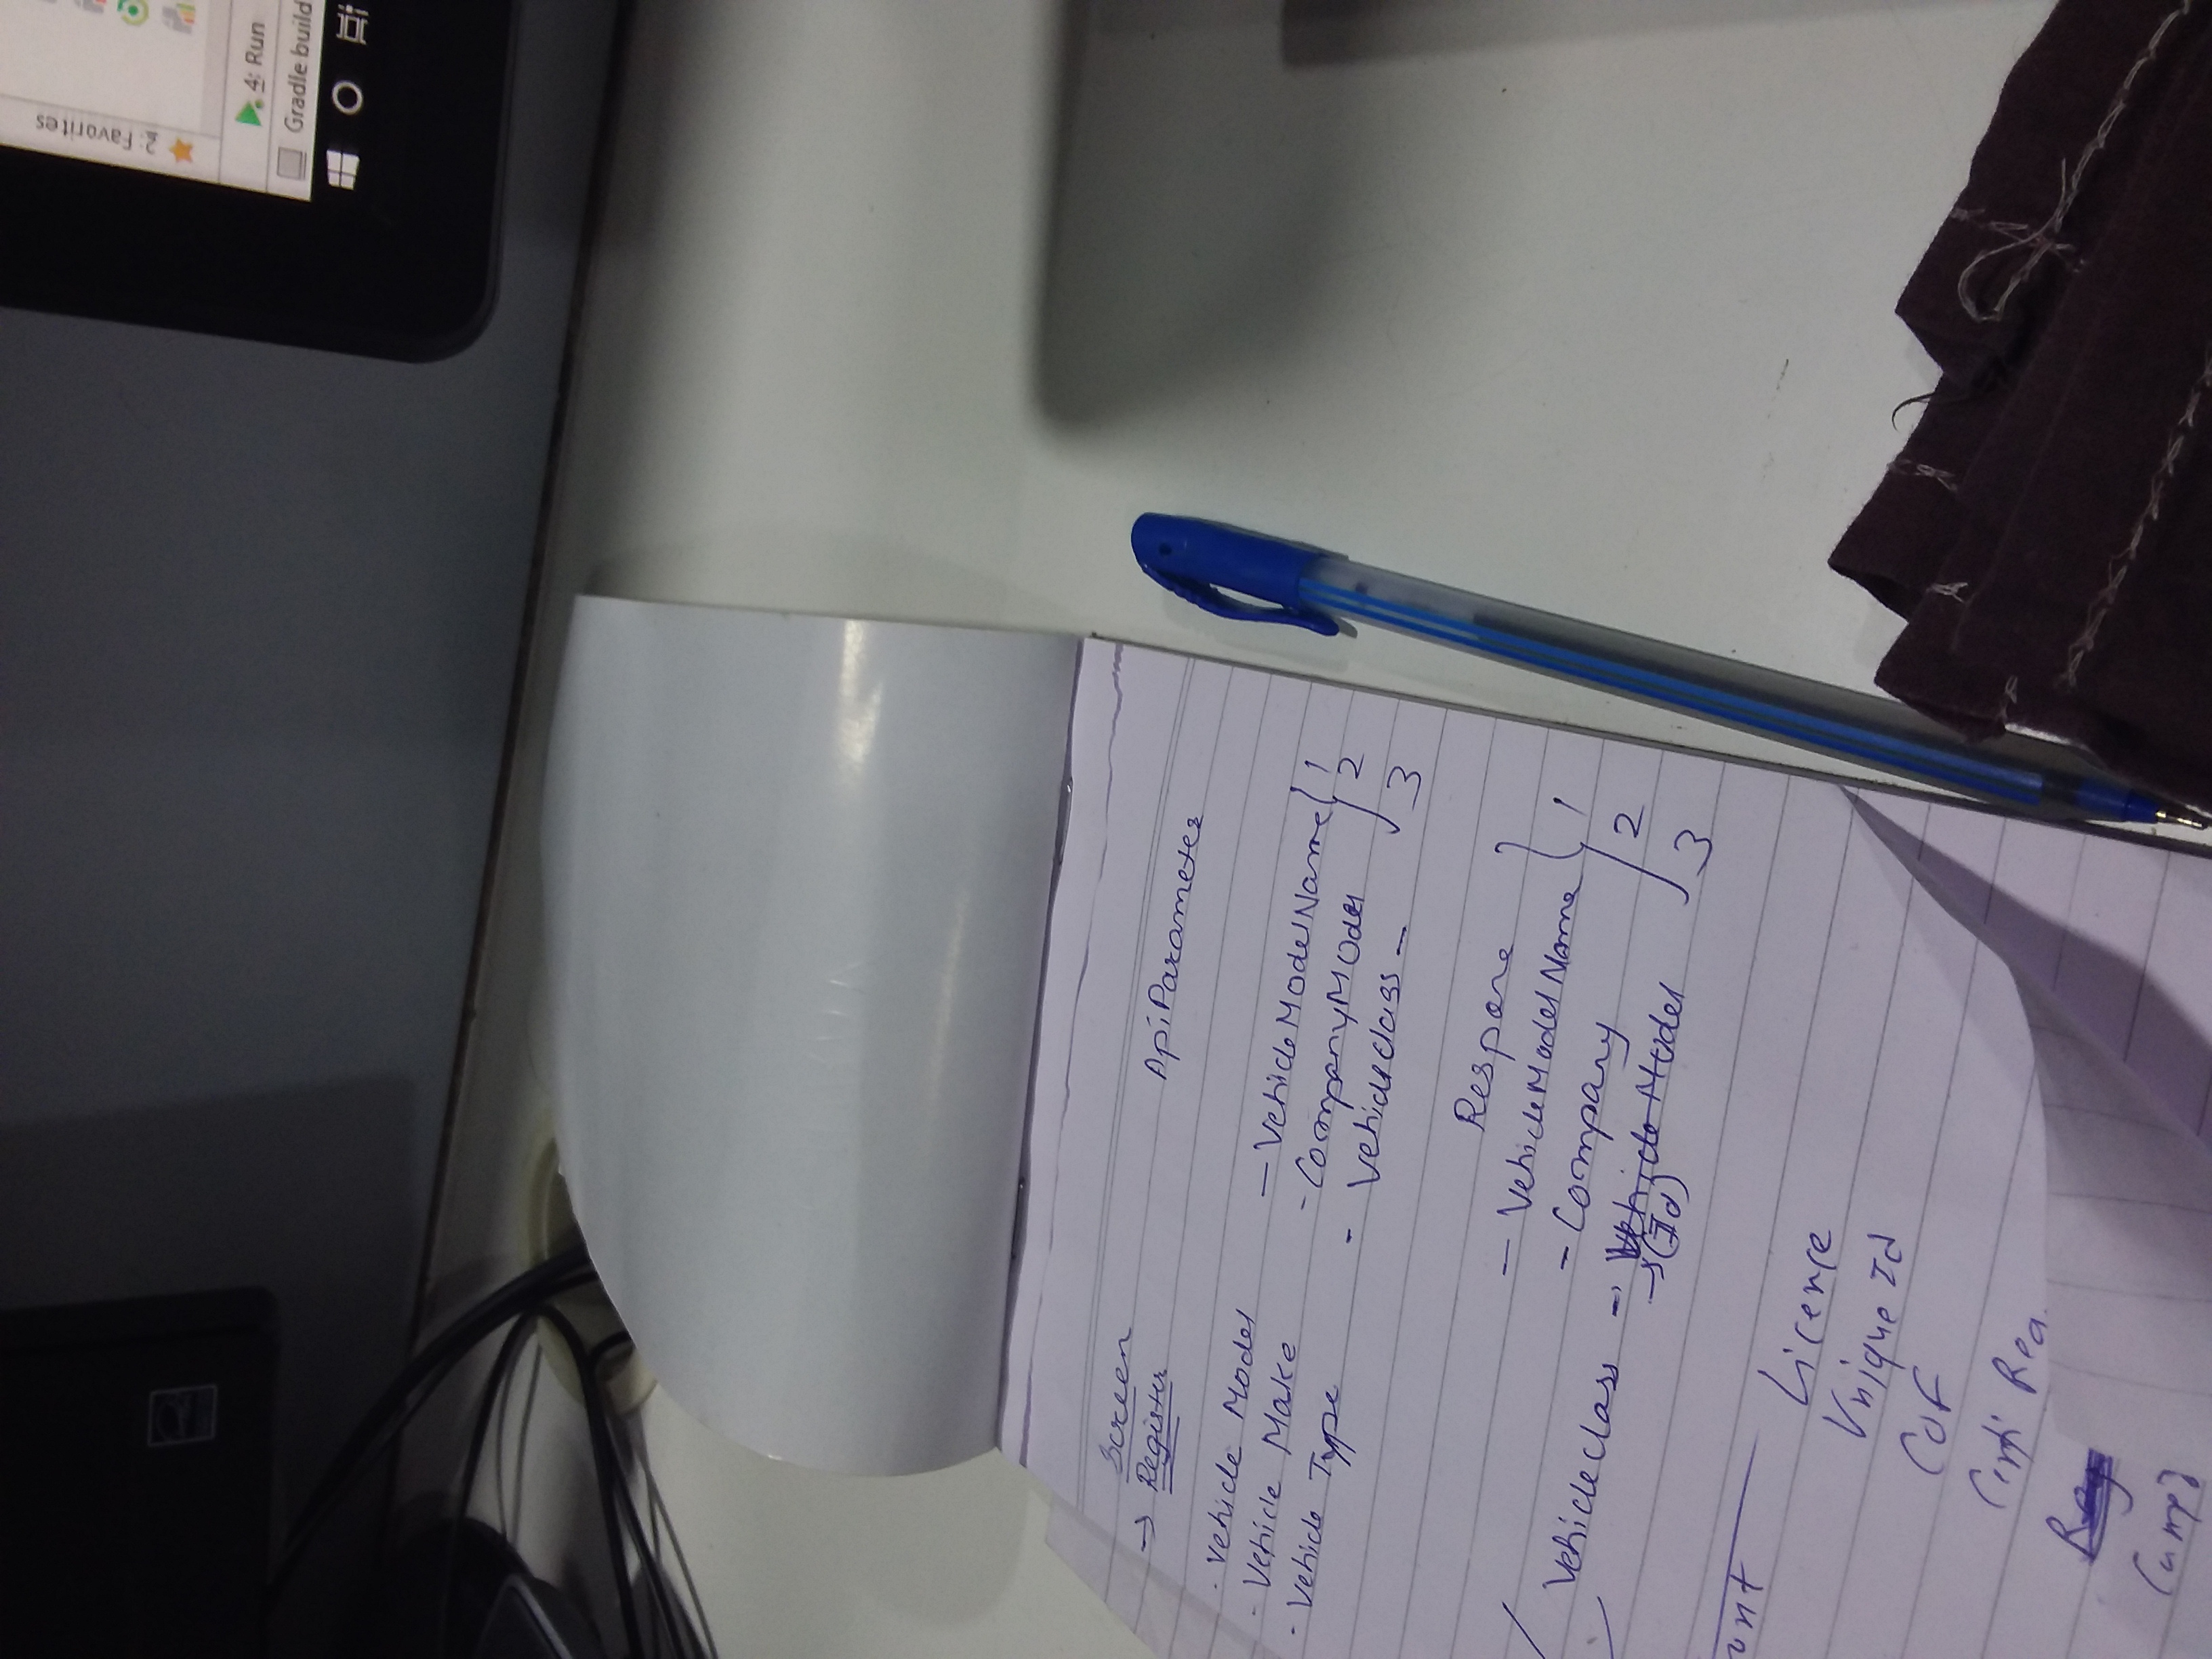 2: Favorites
4: Run
Gradle build
Screen
→ Register
ApiParameter
. Vehicle Model
- Vehicle Make
- Vehicle Type
— VehicleModelName 1
- CompanyModel 2
- Vehicleclass — 3
Respone
— VehicleModelName 1
- Company 2
Vehicleclass - Vehicle Model 3
→ (Id)
ont
Licence
Unique Id
COF
Reg